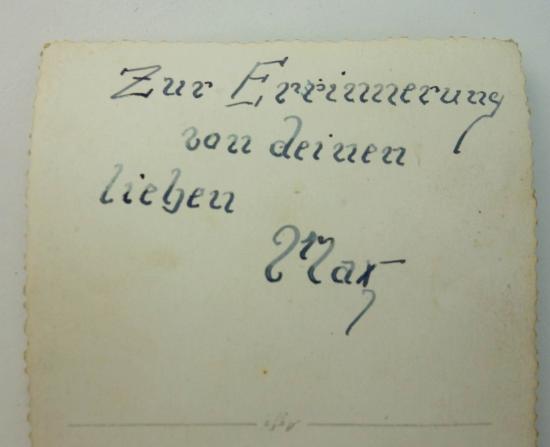 Zur Errinnerung
von deinen
lieben
Max